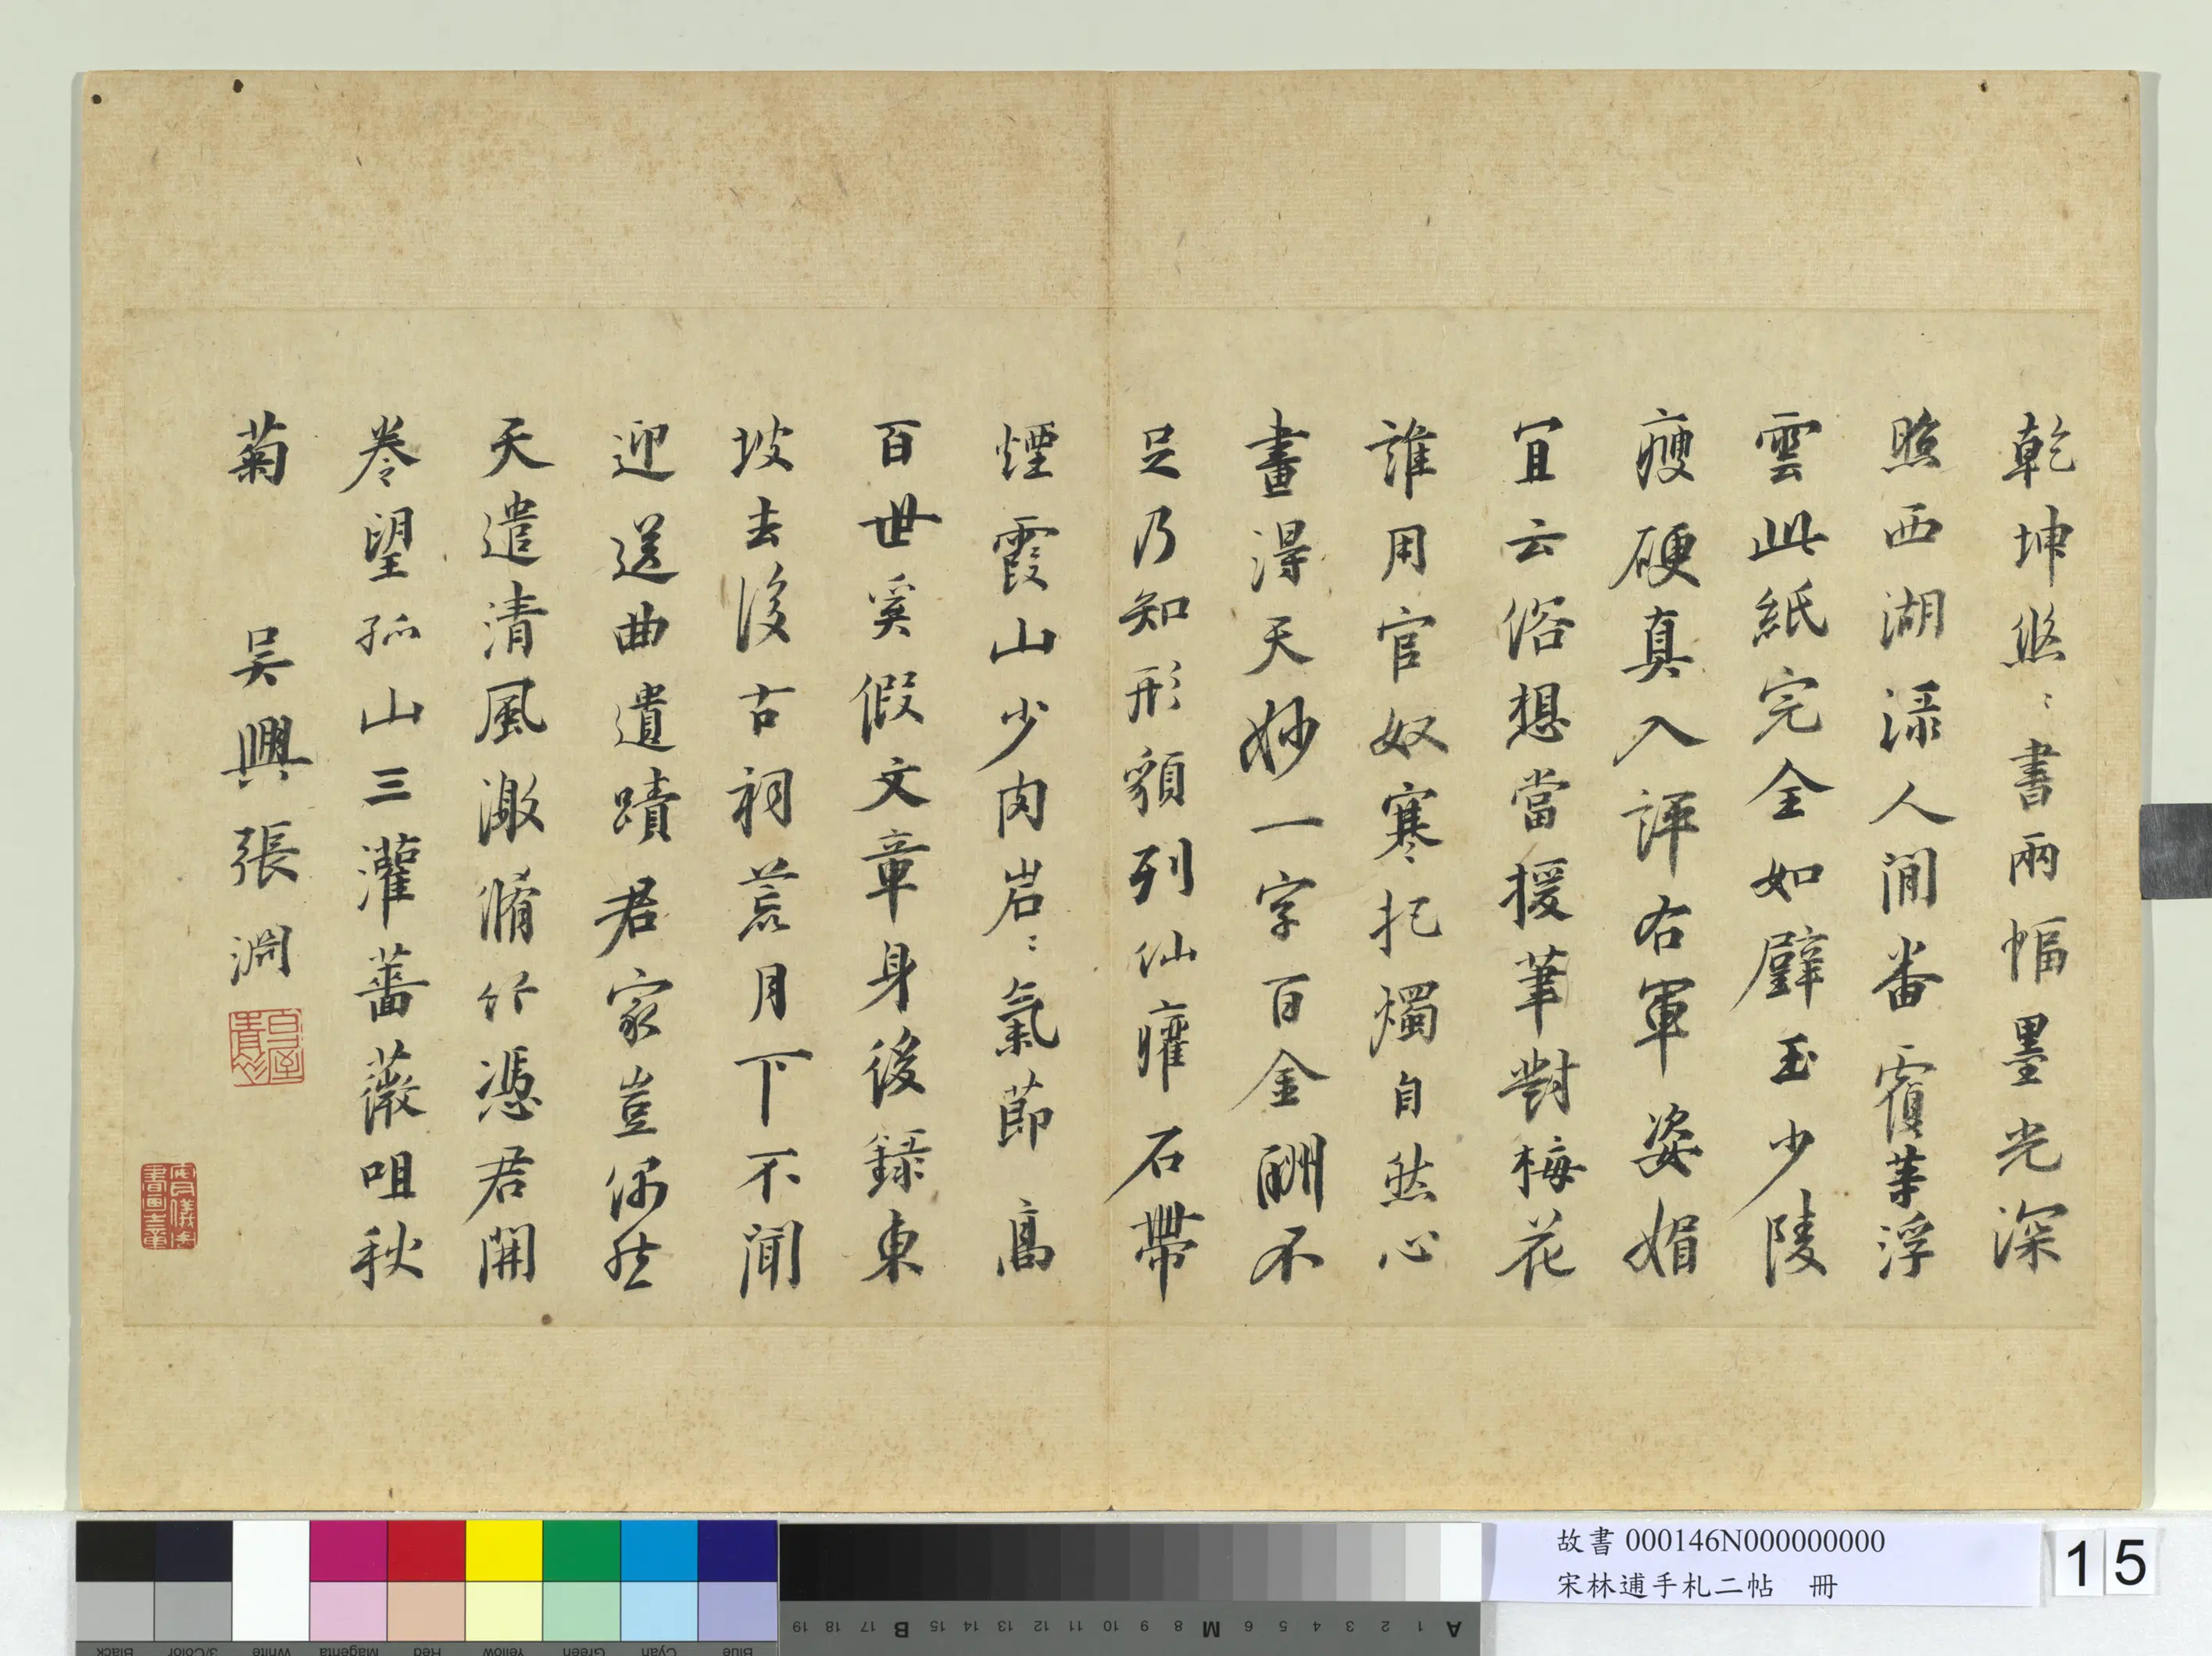 乾坤悠〻書兩幅墨光深
照西湖渌人間番覆幸浮
雲此紙完全如璧玉少陵
瘦硬真入評右軍姿媚
宜云俗想當援筆對梅花
誰用官奴寒把燭自然心
畫得天妙一字百金酬不
足乃知形貌列仙癯石帶
煙霞山少肉岩〻氣節高
百世奚假文章身後録東
坡去後古祠荒月下不聞
迎送曲遺蹟君家豈偶然
天遣清風激脩竹憑君開
卷望孤山三灌薔薇咀秋
菊 吳興張淵
故書 000146N000000000
宋林逋手札二帖 冊
15
19 18 17 B 15 14 13 12 11 10 9 8 M 6 5 4 3 2 1 A
Black 3/Color White Magenta Red Yellow Green Cyan Blue